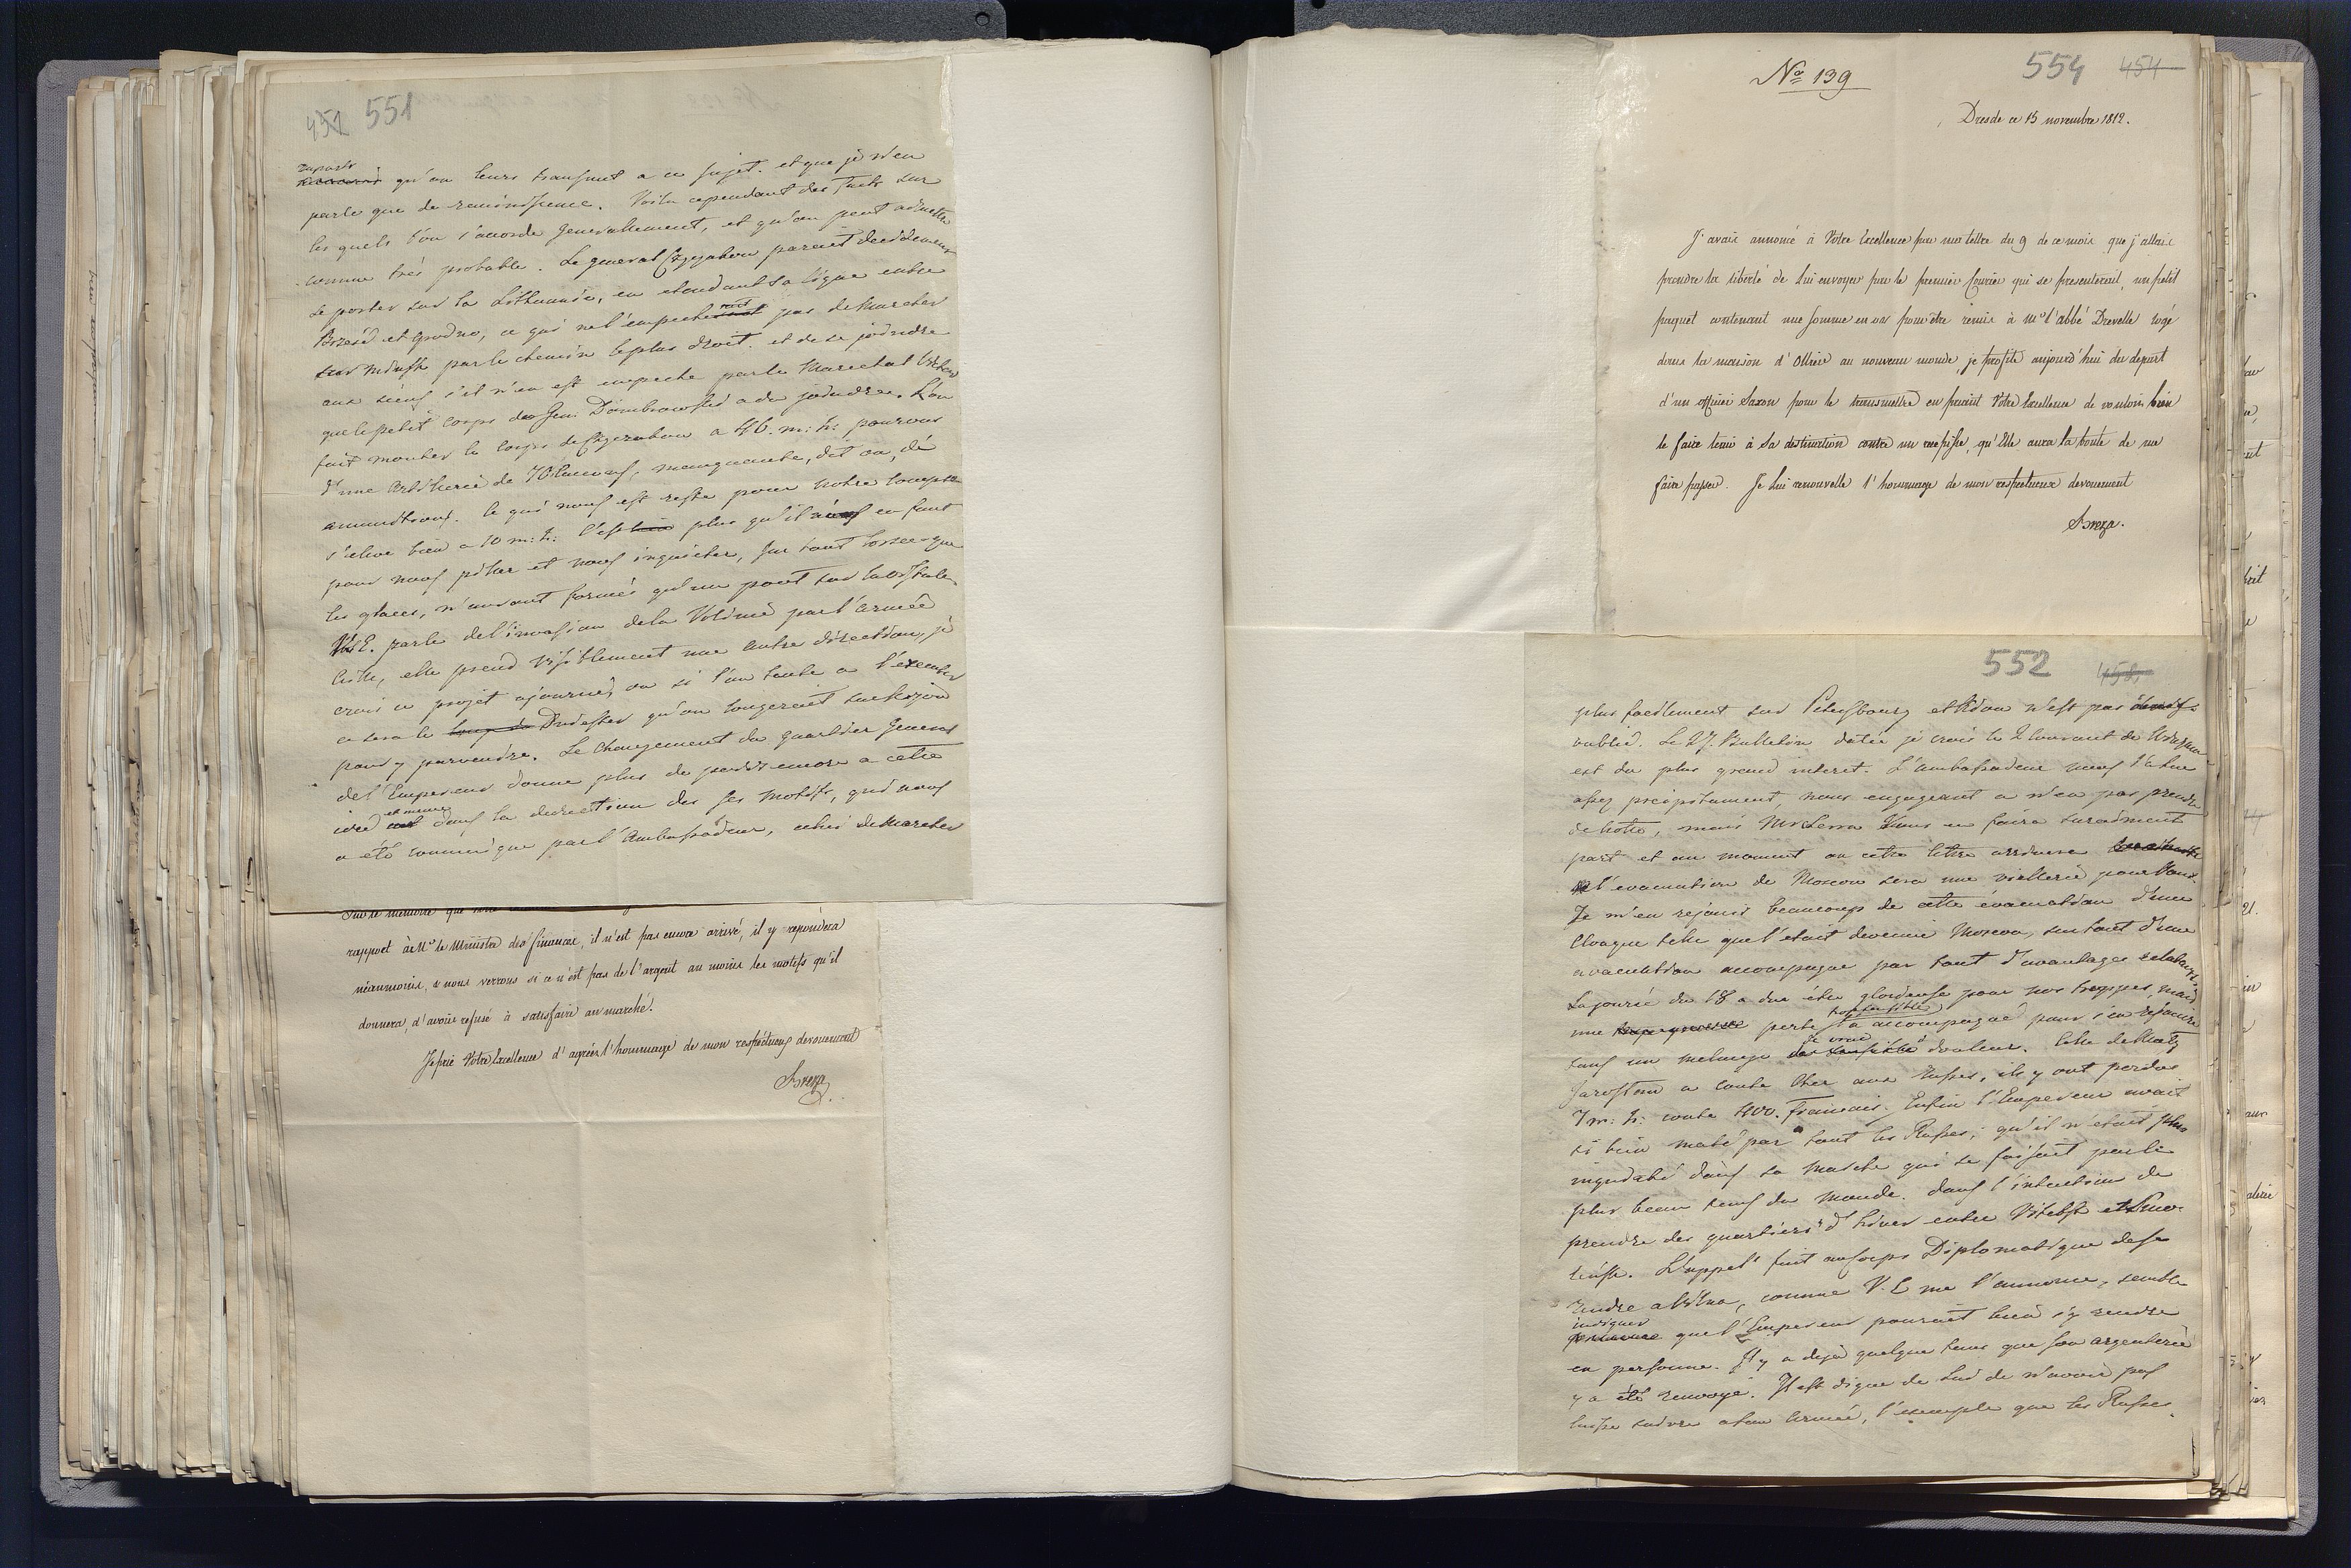 451 551
raports
qu'on leurs transmet a ce sujet. et que je n'en
parle que de reminissence. Voila cependant des faits sur
les quels l'on s'accorde generallement, et qu'on peut admettre
comme très probable. Le general Czyczakow parait decidement
se porter sur la Lithuanie, en etendant sa ligne entre
Brzesć et Grodno, ce qui ne l'empecherait pas de marcher
sur Minsk par le chemin le plus droit. et de se joindre
aux siens s'il n'en est empeche par le Marechal
que le petit corps du Gen: Dombrowski a du joindre. L'on
fait monter le corps de a 46. m: h: pourvus
d'une Artillerie de 70 Canons, manquante, dit on, de
amunitions. Ce qui nous est reste pour notre compte
s'eleve bien a 10 m: h: C'est plus qu'il en faut
pour nous piller et nous inquieter, sur tout lorsque
les glaces, n'auront formés qu'un pont sur la Vistule.
V.E. parle de l'invasion de la Volinie par l'armée
elle prend visiblement une autre direction, je
crois ce projet ajourné, ou si l'on tente a l'executer
ce sera le Dniester qu'on longerait
pour y parvendre. Le changement du quartier General
de l'Empereur donne plus de poids encore a cette
idée et meme dans la direction des ses motifs, qui nous
a été communiqué par l'Ambassadeur, celui de marcher
sur le memoire que
rapport à Mr le Ministre des finances, il n'est pas encore arrivé, il y repondera
néanmoins, & nous verrons si ce n'est pas de l'argent au moins les motifs qu'il
donnera, d'avoir refusé à satisfaire au marché.
Je prie Votre Excellence d'agréer l'hommage de mon respectueux devouement
Breza
No 139
554 454
Dresde ce 15 novembre 1812.
J'avais annoncé à Votre Excellence par ma lettre du 9 de ce mois que j'allais
prendre la liberté de Lui envoyer par le premier Courier qui se presenterait, un petit
paquet contenant une somme en or pour être remis à Mr l'abbé Drevelle logé
dans la maison d'Ollier au nouveau monde, je profite aujourd'hui du depart
d'un officier Saxon pour le transmettre en priant Votre Excellence de vouloir bien
le faire tenir à sa destination contre un recepisse, qu'Elle aura la bonté de me
faire passer. Je Lui renouvelle l'hommage de mon respectueux devouement
Breza.
552
plus facilement sur Petersbourg et n'est pas
oublié. Le 27. Bulletin datée je crois le 2 Courant de
est du plus grand interet. L'ambassadeur nous l'a lue
assez precipitament, nous engageant a n'en pas prendre
de notte, mais Mr de Serra Vous en faira surement
part et au moment ou cette lettre arrivera
l'evacuation de Moscou sera une viellerie pour Vous.
Je m'en rejouis beaucoup de cette évacuation d'une
Cloaque telle que l'etait devenue Moscou, surtout d'une
evacuation accompagne par tant d'avantages
La journé du 18 a due être glorieuse pour nos troppes, mais
une perte trop sensible l'a accompagné pour s'en rejouire
sans un melange de vraie douleur. Celle de Maly
Jaroslau a coute Cher aux Russes, ils y ont perdus
7 m: h: contre 1400. francais. Enfin l'Empereur avait
si bien maté par tout les Russes, qu'il n'etait plus
inquieté dans sa marche qui se faisait par le
plus beau tems du monde. dans l'intention de
prendre des quartiers d'hiver entre Vitebsk et Smo-
lensk. L'appel fait au Corps Diplomatique de se
rendre a Vilna, comme V.E me l'annonce, semble
indiquer que l'Empereur pourrait bien s'y rendre
en personne. Il y a deja quelque tems que son argenterie
y a été renvoyé. Il est digne de Lui de n'avoir pas
laisse suivre a son armée, l'exemple que les Russes